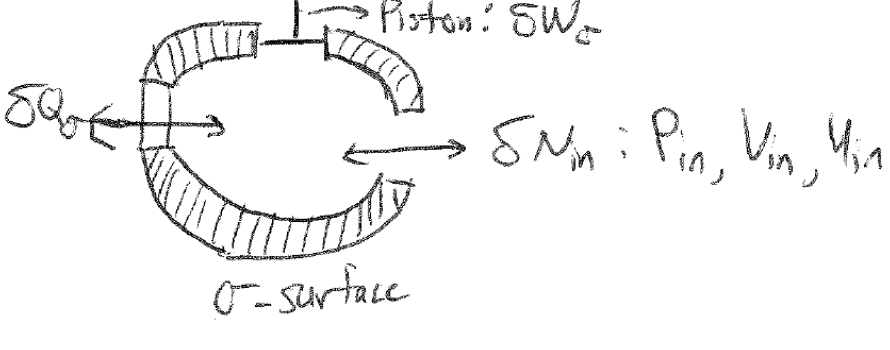 Piston: δW_σ
δQ_σ
δN_in : P_in, V_in, U_in
σ-surface